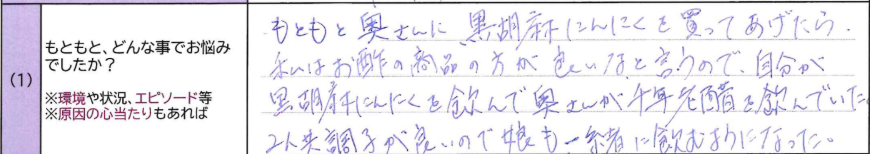 (1)
もともと、どんな事でお悩み
でしたか？
※環境や状況、エピソード等
※原因の心当たりもあれば
もともと奥さんに黒胡麻にんにくを買ってあげたら、
私はお酢の商品の方が良いなと言うので、自分が
黒胡麻にんにくを飲んで奥さんが千年老醋を飲んでいた。
2人共調子が良いので娘も一緒に飲むようになった。